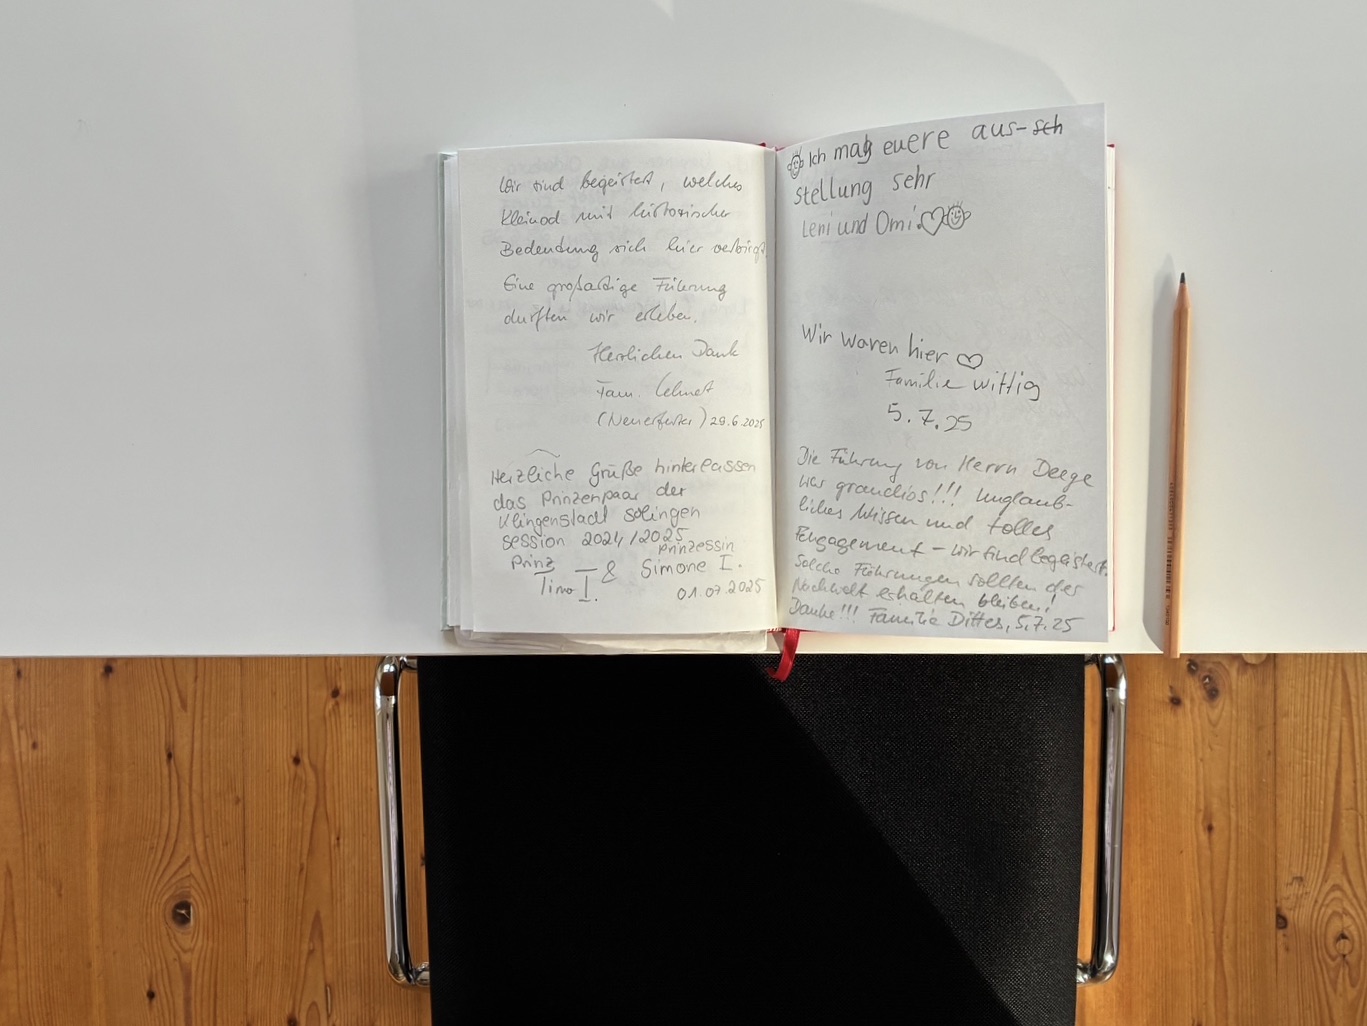 Wir sind begeistert, welches
Kleinod mit historischer
Bedeutung sich hier verbirgt.
Eine großartige Führung
durften wir erleben.
Herzlichen Dank
Fam.
29.6.2025
Herzliche Grüße hinterlassen
das Prinzenpaar der
Klingenstadt Solingen
Session 2024/2025
Prinz Prinzessin
Timo I. & Simone I.
01.07.2025
Ich mag euere aus-sch
stellung sehr
Leni und Omi
Wir waren hier
Familie Wittig
5.7.25
Die Führung von Herrn Deege
war grandios!!! Unglaub-
liches Wissen und tolles
Engagement – wir sind begeistert.
Solche Führungen sollten der
Nachwelt erhalten bleiben!
Danke!!! Familie Dittes, 5.7.25